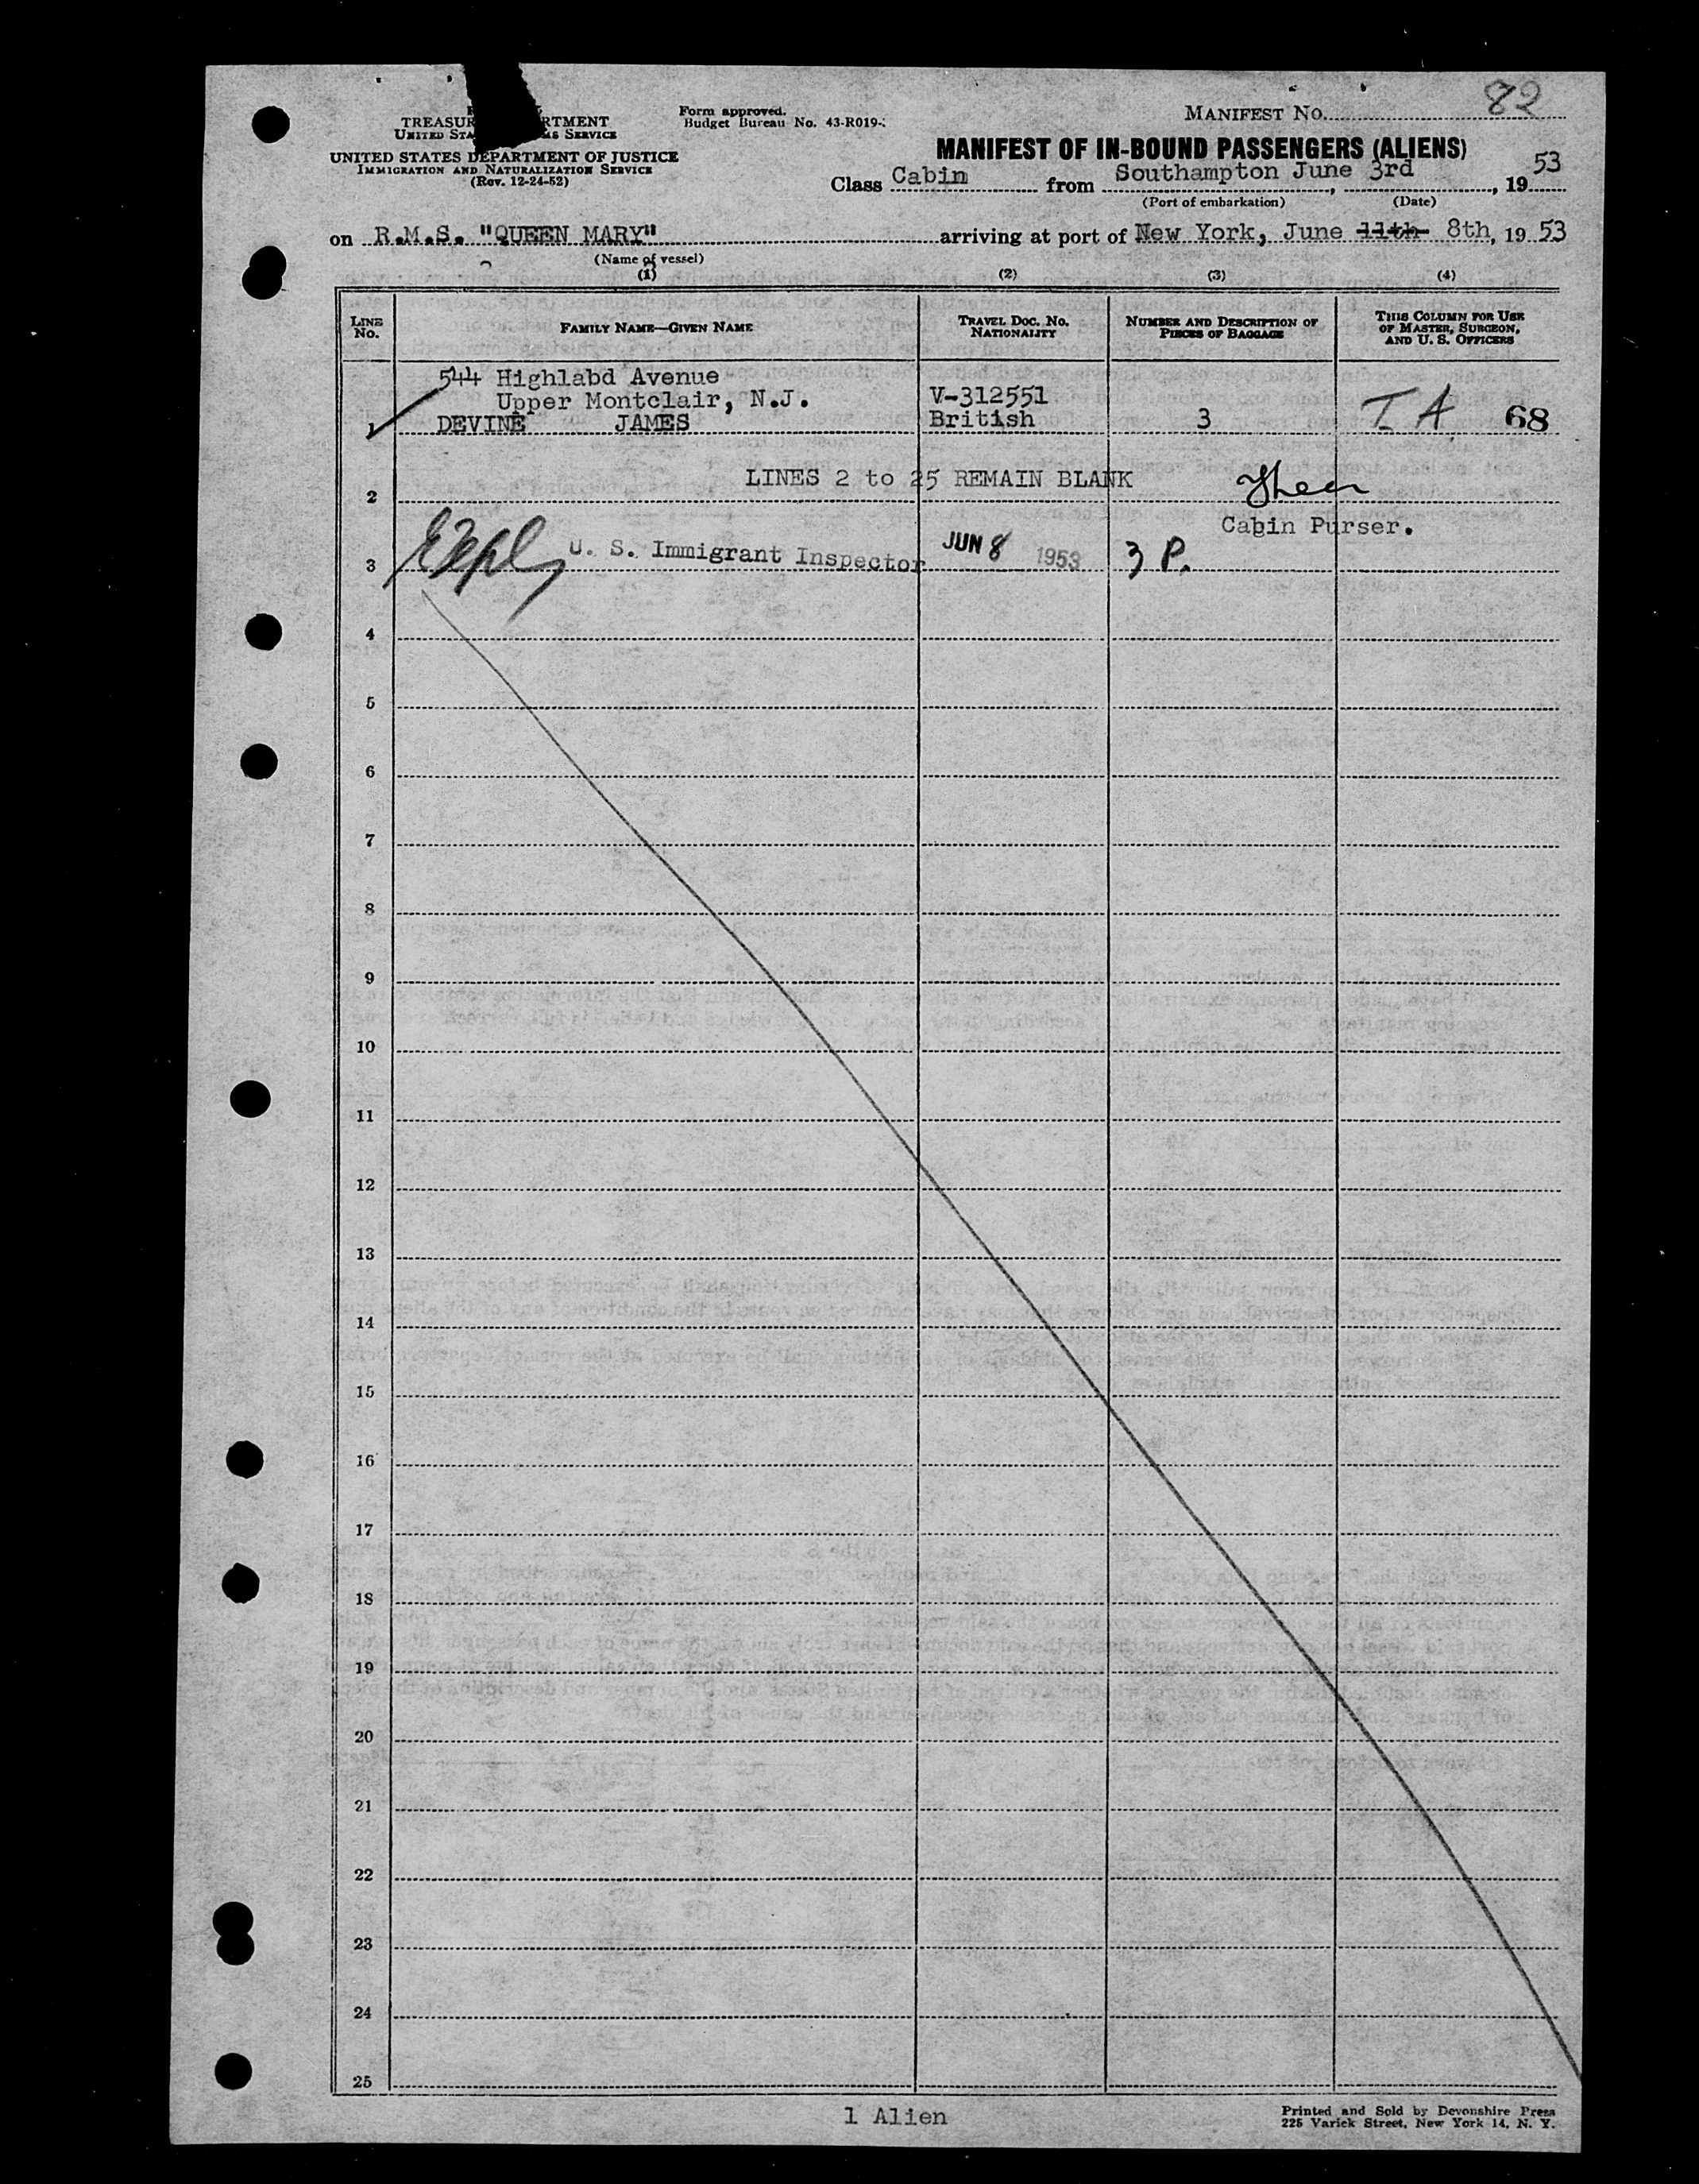 MANIFEST NO. 82
TREASURY DEPARTMENT
UNITED STATES CUSTOMS SERVICE
UNITED STATES DEPARTMENT OF JUSTICE
IMMIGRATION AND NATURALIZATION SERVICE
(Rev. 12-24-52)
Form approved.
Budget Bureau No. 43-R019-
MANIFEST OF IN-BOUND PASSENGERS (ALIENS)
Class Cabin from Southampton June 3rd, 19 53
(Port of embarkation) (Date)
on R.M.S. "QUEEN MARY" arriving at port of New York, June 11th 8th, 19 53
(Name of vessel)
(1) (2) (3) (4)
LINE NO. FAMILY NAME—GIVEN NAME TRAVEL DOC. NO. NATIONALITY NUMBER AND DESCRIPTION OF PIECES OF BAGGAGE THIS COLUMN FOR USE OF MASTER, SURGEON, AND U. S. OFFICERS
544 Highlabd Avenue
Upper Montclair, N.J. V-312551
1 DEVINE JAMES British 3 I A 68
LINES 2 to 25 REMAIN BLANK
2
Cabin Purser.
3 U. S. Immigrant Inspector JUN 8 1953 3 P.
4
5
6
7
8
9
10
11
12
13
14
15
16
17
18
19
20
21
22
23
24
25
1 Alien
Printed and Sold by Devonshire Press
225 Varick Street, New York 14, N. Y.